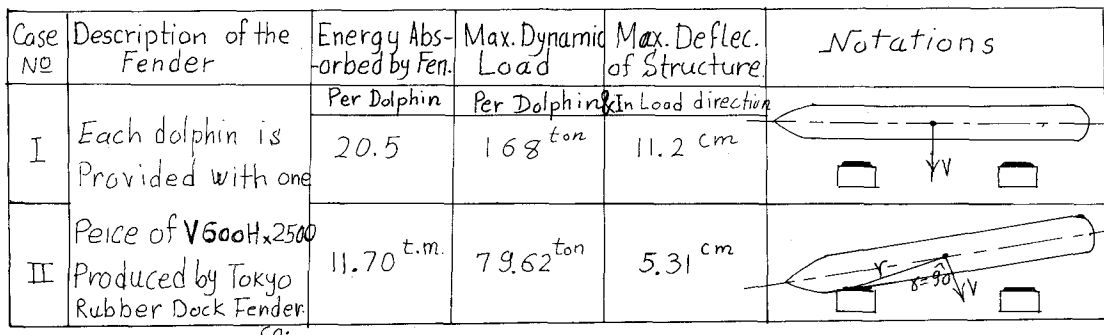 Case No Description of the Fender Energy Abs-orbed by Fen. Max. Dynamic Load Max. Deflec. of Structure Notations
Per Dolphin Per Dolphin & In Load direction
I
Each dolphin is
Provided with one
20.5 168 ton 11.2 cm
V
II
Peice of V600H x 2500
Produced by Tokyo
Rubber Dock Fender
co.
11.70 t.m. 79.62 ton 5.31 cm
r γ=90 V